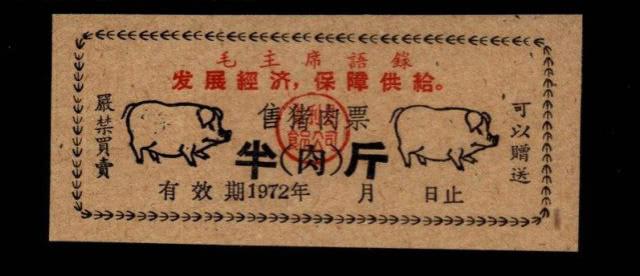 毛主席語錄
发展經济,保障供給。
嚴禁買賣
售猪肉票
可以贈送
半(肉)斤
有效期1972年 月 日止